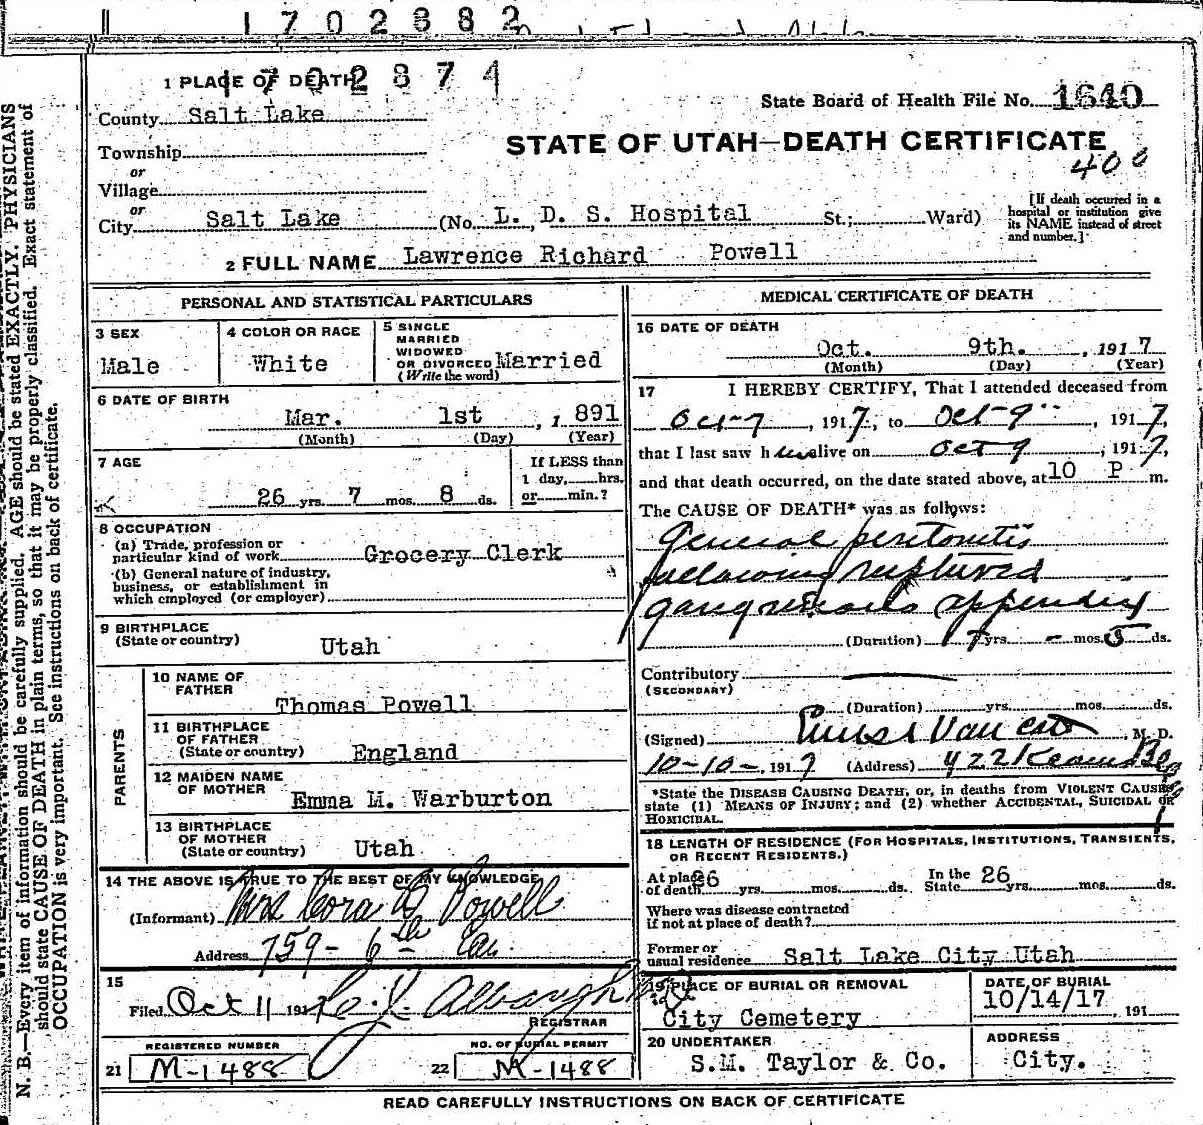 1702882
1702874
1 PLACE OF DEATH
State Board of Health File No. 1640
County Salt Lake
STATE OF UTAH—DEATH CERTIFICATE
400
Township
or
Village
or
City Salt Lake (No. L. D. S. Hospital St.; Ward)
[If death occurred in a
hospital or institution give
its NAME instead of street
and number.]
2 FULL NAME Lawrence Richard Powell
PERSONAL AND STATISTICAL PARTICULARS
3 SEX
Male
4 COLOR OR RACE
White
5 SINGLE
MARRIED
WIDOWED
OR DIVORCED Married
(Write the word)
6 DATE OF BIRTH
Mar. 1st , 1 891
(Month) (Day) (Year)
7 AGE
26 yrs. 7 mos. 8 ds.
If LESS than
1 day, hrs.
or min.?
8 OCCUPATION
(a) Trade, profession or
particular kind of work Grocery Clerk
(b) General nature of industry,
business, or establishment in
which employed (or employer)
9 BIRTHPLACE
(State or country) Utah
PARENTS
10 NAME OF
FATHER Thomas Powell
11 BIRTHPLACE
OF FATHER
(State or country) England
12 MAIDEN NAME
OF MOTHER Emma M. Warburton
13 BIRTHPLACE
OF MOTHER
(State or country) Utah
14 THE ABOVE IS TRUE TO THE BEST OF MY KNOWLEDGE
(Informant) Mrs Cora Powell
Address 759 - 6th Ea.
15
Filed Oct 11 1917
REGISTRAR
REGISTERED NUMBER
21 M-1488
NO. OF BURIAL PERMIT
22 M-1488
MEDICAL CERTIFICATE OF DEATH
16 DATE OF DEATH
Oct. 9th. , 1917
(Month) (Day) (Year)
17 I HEREBY CERTIFY, That I attended deceased from
Oct-7 , 1917, to Oct-9 , 1917,
that I last saw him alive on Oct 9 , 1917,
and that death occurred, on the date stated above, at 10 P m.
The CAUSE OF DEATH* was as follows:
General peritonitis
following ruptured
gangrenous appendix
(Duration) yrs. - mos. 5 ds.
Contributory
(SECONDARY)
(Duration) yrs. mos. ds.
(Signed) Van Cott M. D.
10-10-, 1917 (Address) 422 Kearns Bldg
*State the DISEASE CAUSING DEATH, or, in deaths from VIOLENT CAUSES
state (1) MEANS OF INJURY; and (2) whether ACCIDENTAL, SUICIDAL or
HOMICIDAL.
18 LENGTH OF RESIDENCE (FOR HOSPITALS, INSTITUTIONS, TRANSIENTS,
OR RECENT RESIDENTS.)
At place
of death 26 yrs. mos. ds. In the
State 26 yrs. mos. ds.
Where was disease contracted
if not at place of death?
Former or
usual residence Salt Lake City Utah
19 PLACE OF BURIAL OR REMOVAL
City Cemetery
DATE OF BURIAL
10/14/17 , 191
20 UNDERTAKER
S.M. Taylor & Co.
ADDRESS
City.
READ CAREFULLY INSTRUCTIONS ON BACK OF CERTIFICATE
N. B.—Every item of information should be carefully supplied. AGE should be stated EXACTLY. PHYSICIANS
should state CAUSE OF DEATH in plain terms, so that it may be properly classified. Exact statement of
OCCUPATION is very important. See instructions on back of certificate.